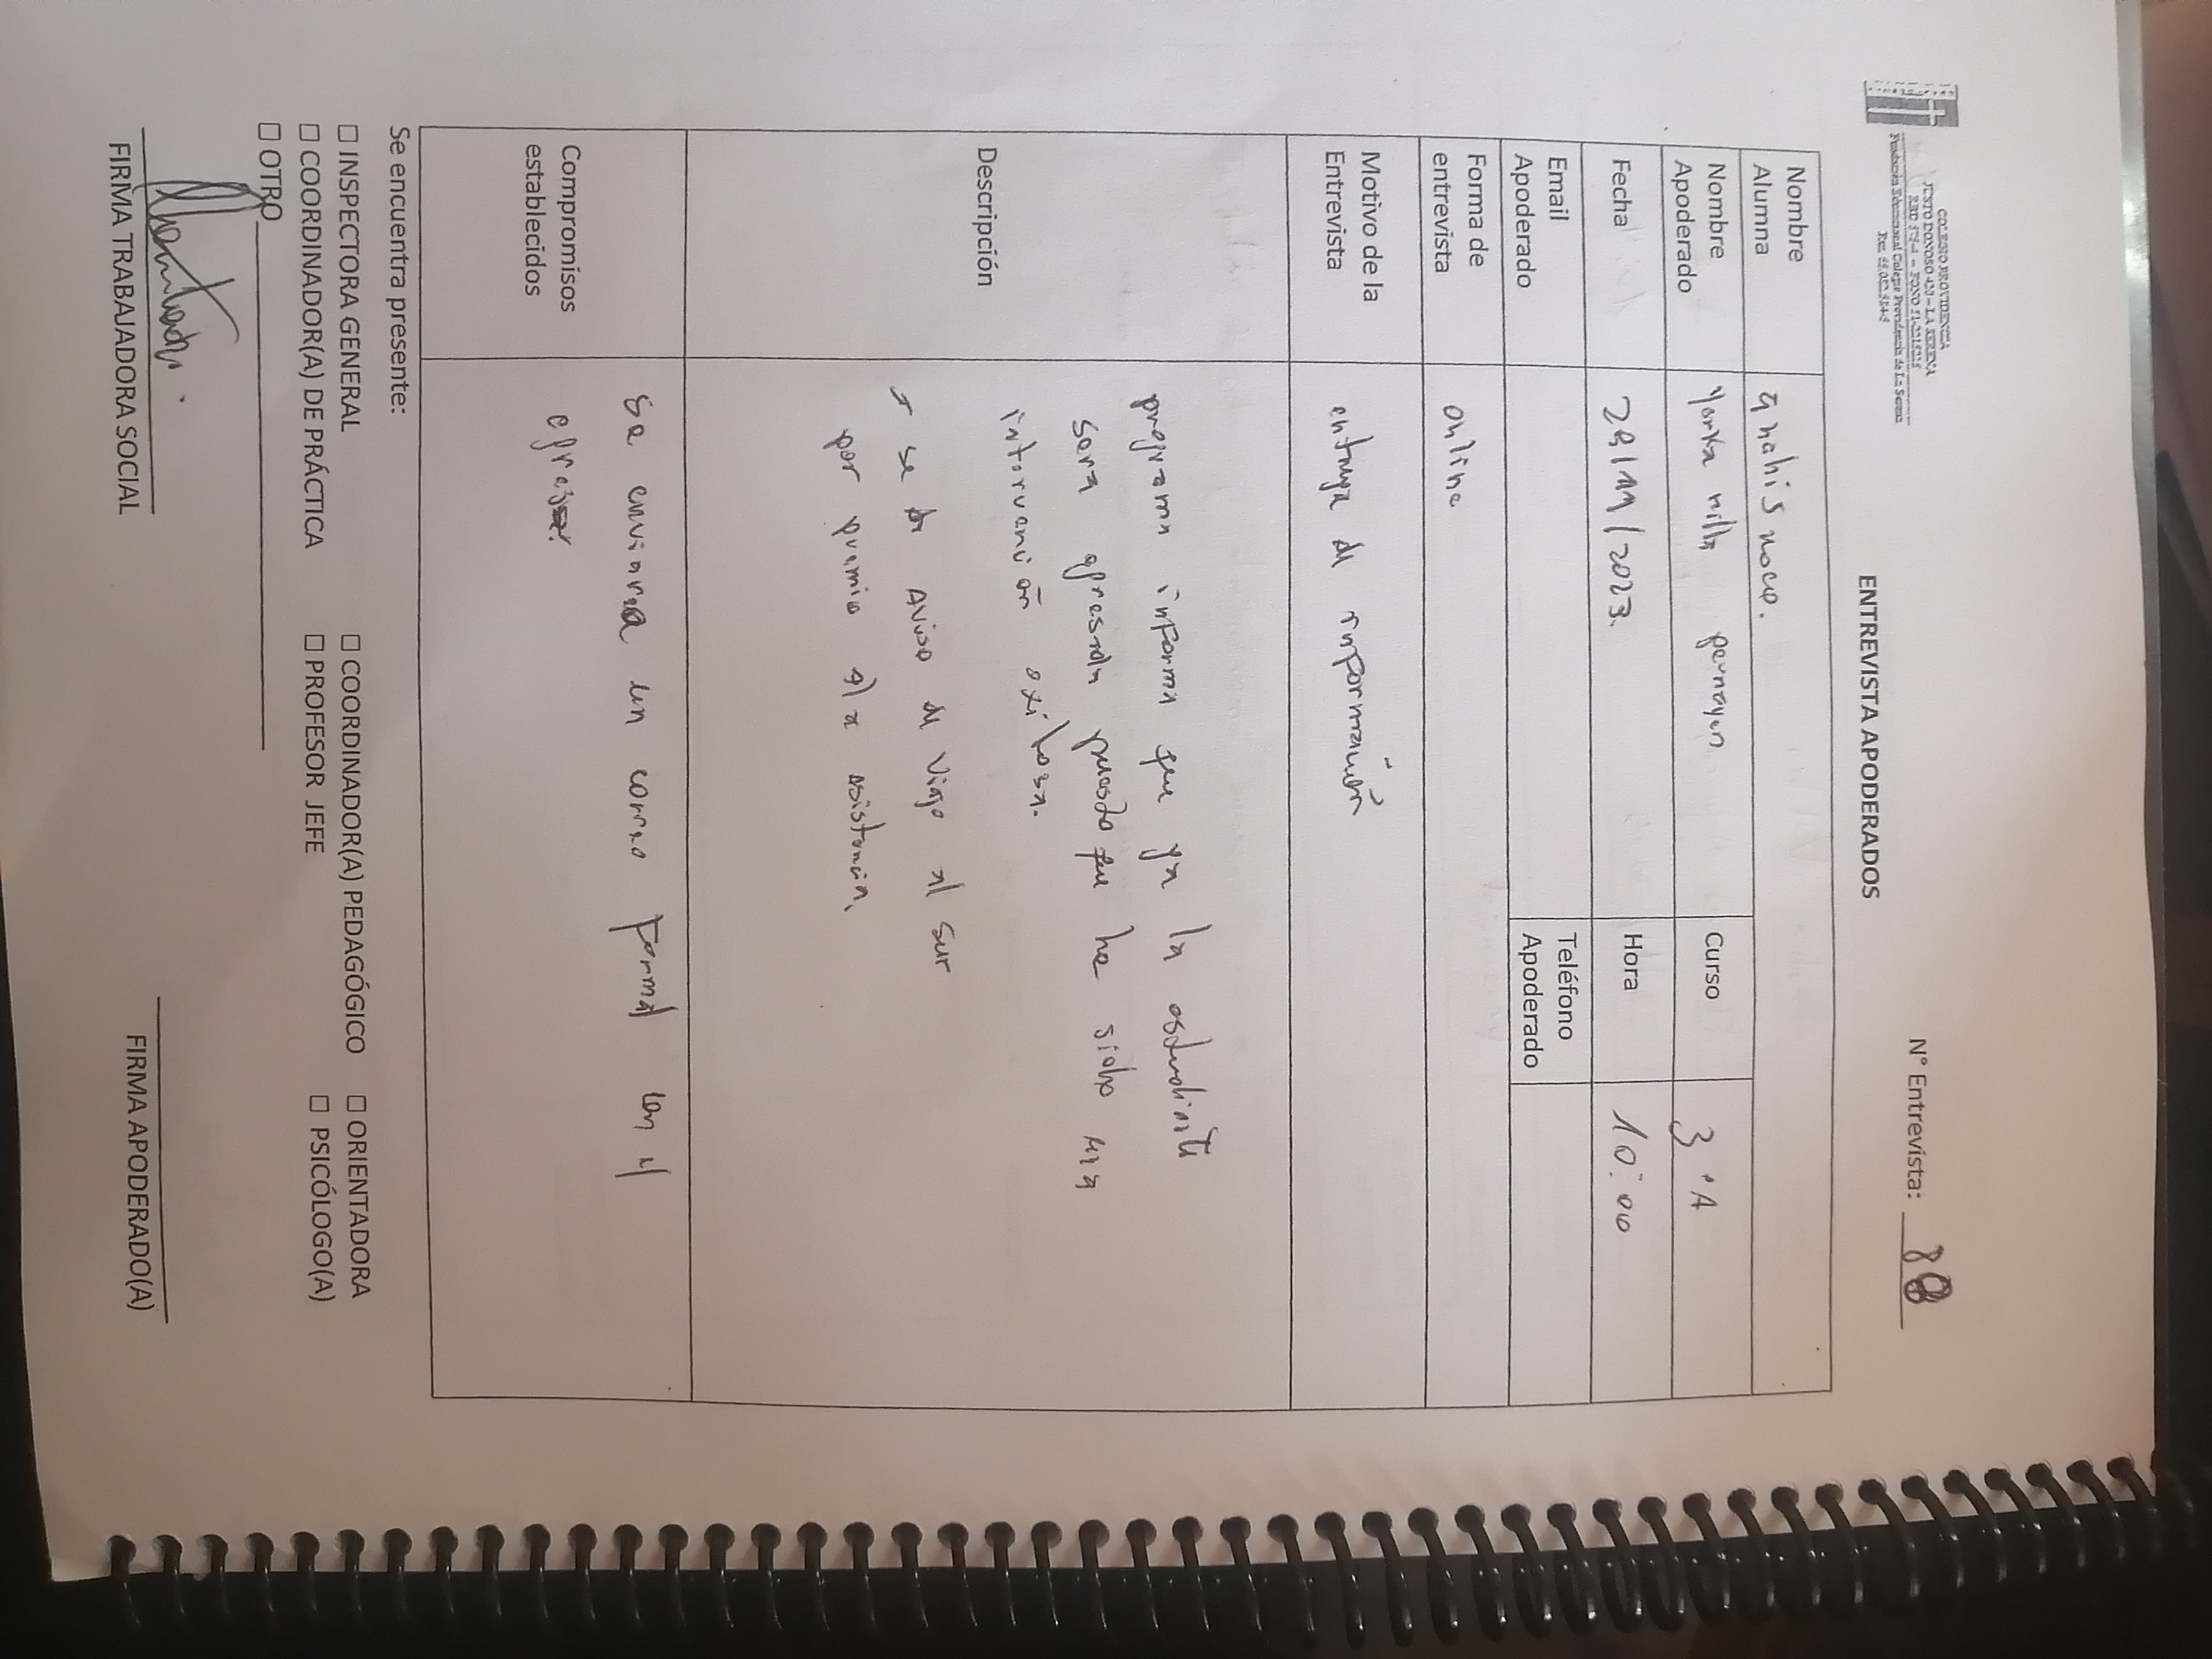 COLEGIO PROVIDENCIA
JUSTO DONOSO 420 – LA SERENA
Fundación Educacional Colegio Providencia de La Serena
N° Entrevista: 88
ENTREVISTA APODERADOS
Nombre Alumna
anahis
Nombre Apoderado
Curso
3°A
Fecha
28/11/2023.
Hora
10:00
Email Apoderado
Teléfono Apoderado
Forma de entrevista
online
Motivo de la Entrevista
entrega de información
Descripción
programa informa que ya la estudiante
sera egresada puesto que ha sido una
intervención exitosa.
se da aviso de viaje al sur
por premio a la asistencia.
Compromisos establecidos
Se enviara un correo formal con el
egreso.
Se encuentra presente:
☐ INSPECTORA GENERAL ☐ COORDINADOR(A) PEDAGÓGICO ☐ ORIENTADORA
☐ COORDINADOR(A) DE PRÁCTICA ☐ PROFESOR JEFE ☐ PSICÓLOGO(A)
☐ OTRO
FIRMA TRABAJADORA SOCIAL
FIRMA APODERADO(A)